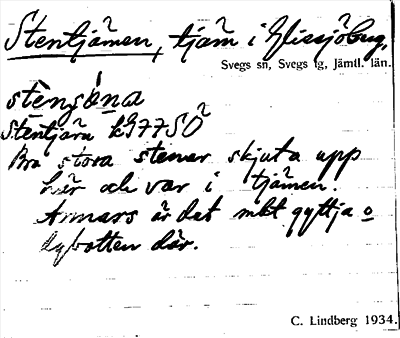 Stentjärnen, tjärn i Glissjöberg,
Svegs sn, Svegs tg, Jämtl. län.
Stentjärn
Bra stora stenar skjuta upp
här och var i tjärnen.
Annars är det mkt gyttja o
dybotten där.
C. Lindberg 1934.